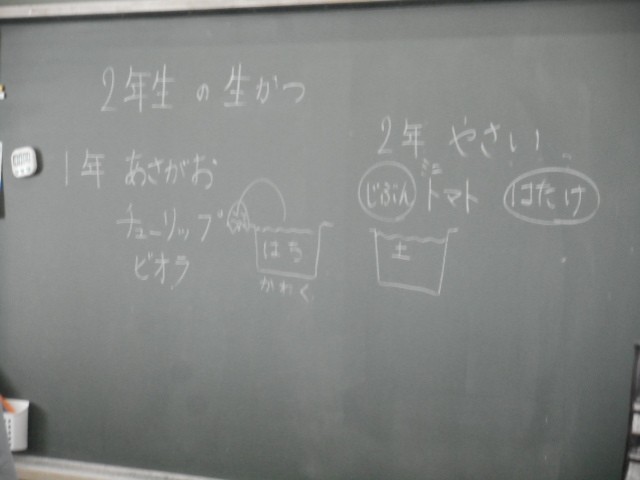 2年生の生かつ
1年 あさがお
チューリップ
ビオラ
はち
かわく
2年 やさい
じぶん
ミニ
トマト
はたけ
土